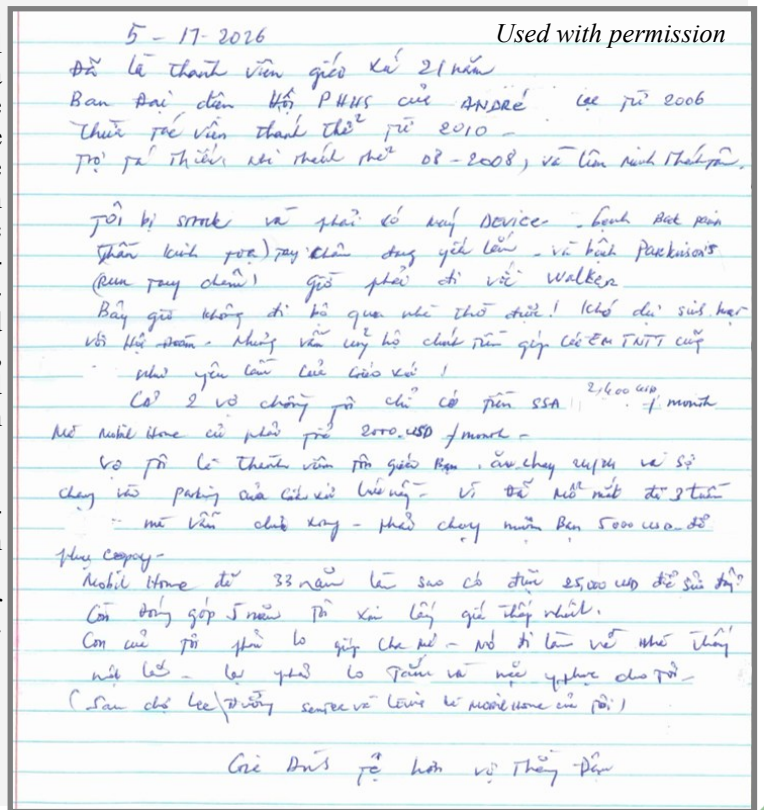 5 - 17 - 2026
Used with permission
Đã là thành viên giáo xứ 21 năm
Ban Đại diện Hội PHHS của ANDRÉ lạc từ 2006
Thừa tác viên thánh thể từ 2010 -
Trợ tá thiếu nhi thánh thể 08 - 2008, và Lâm Minh
Tôi bị stroke và phải có máy Device - bệnh Back pain
(thần kinh tọa) tay chân đang yếu lắm - và bệnh Parkinson's
(Run tay chân) giờ phải đi với Walker
Bây giờ không đi bộ qua nhà thờ được! Khó dự sinh hoạt
với Hội Đoàn - Nhưng vẫn ủng hộ chút tiền giúp các EM TNTT cũng
như yêu cầu của Giáo xứ!
Cả 2 vợ chồng tôi chỉ có tiền SSA 2,400 USD / month
Mà Mobil Home cũ phải trả 2000.USD / month -
Vợ tôi là thành viên tôn giáo Bạn, ăn chay và sợ
chạy vào parking của Giáo xứ - Vì Đã Mổ mắt đi 3 tuần
mà vẫn chưa xong - phải chạy mượn Bạn 5000 USD để
phụ copay -
Mobil Home đã 33 năm làm sao có được 25,000 USD để sửa đây?
Còn đóng góp 5 năm tôi xin lấy giá thấp nhất.
Con của tôi phải lo giúp Cha Mẹ - Nó đi làm về nhà thấy
mệt lắm - lại phải lo Tắm và mặc y phục cho Tôi -
(Sau chợ Lee \ Đường Senter và Lewis là Mobile Home của tôi)
tệ hơn vợ thằng Đậu